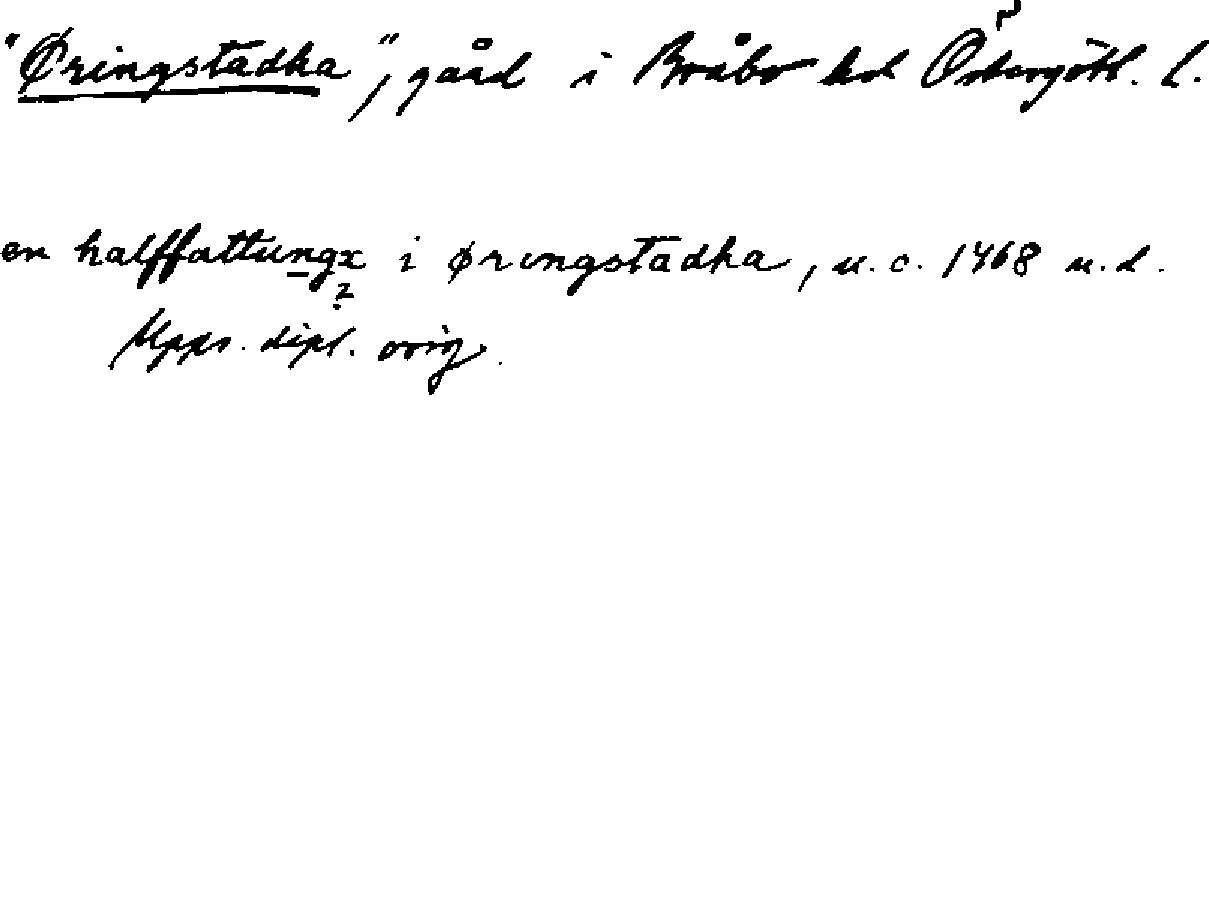 "Øringstadha", gård i Bråbo hd Östergötl. l.
en halffattungx i øringstadha, u. c. 1468 u. d.
?
Upps. dipl. orig.